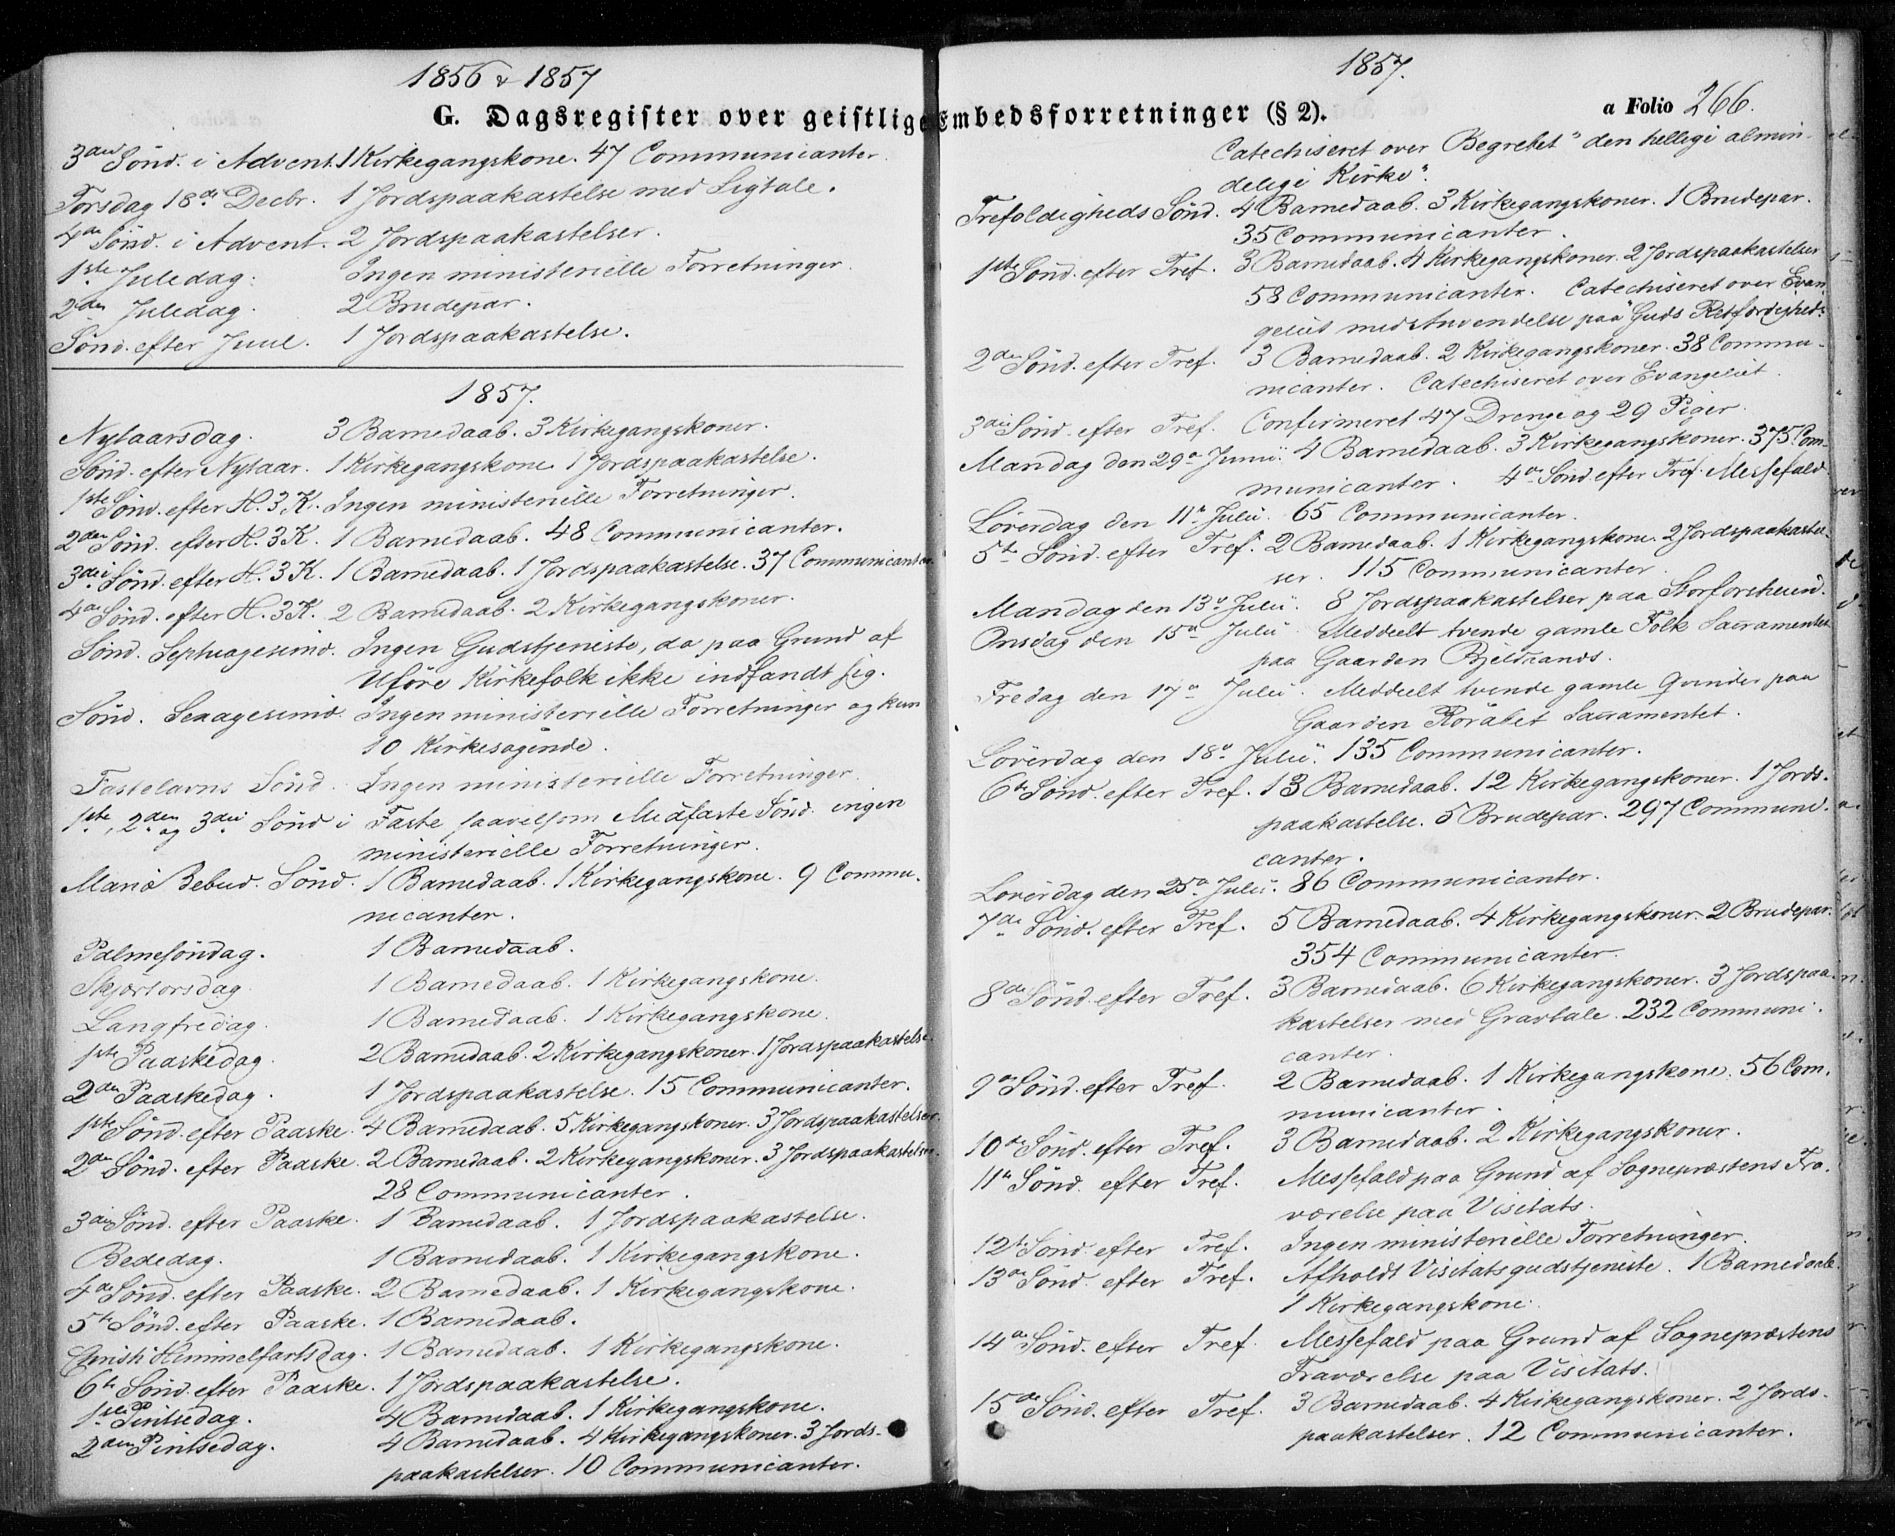 1856 & 1857
G. Dagsregister over geistlige Embedsforretninger (§ 2).
3die Sönd. i Advent. 1 Kirkegangskone. 47 Communicanter.
Torsdag 18de Decbr. 1 Jordspaakastelse med Ligtale.
4de Sönd. i Advent. 2 Jordspaakastelser.
1ste Juledag. Ingen ministerielle Forretninger.
2den Juledag. 2 Brudepar.
Sönd. efter Juul. 1 Jordspaakastelse.
1857.
Nytaarsdag. 3 Barnedaab. 3 Kirkegangskoner.
Sönd. efter Nytaar. 1 Kirkegangskone 1 Jordspaakastelse.
1ste Sönd. efter H. 3 K. Ingen ministerielle Forretninger.
2den Sönd. efter H. 3 K. 1 Barnedaab. 48 Communicanter.
3die Sönd. efter H. 3 K. 1 Barnedaab. 1 Jordspaakastelse. 37 Communicanter.
4de Sönd. efter H. 3 K. 2 Barnedaab. 2 Kirkegangskoner.
Sönd. Septuagesima. Ingen Gudstjeneste, da paa Grund af
Uföre Kirkefolk ikke indfandt sig.
Sönd. Sexagesima. Ingen ministerielle Forretninger og kun
10 Kirkesögende.
Fastelavns Sönd. Ingen ministerielle Forretninger.
1ste, 2den og 3die Sönd i Faste saavelsom Midfaste Sönd. ingen
ministerielle Forretninger.
Mariæ Bebud. Sönd. 1 Barnedaab. 1 Kirkegangskone. 9 Commu-
nicanter.
Palmesöndag. 1 Barnedaab.
Skjærtorsdag. 1 Barnedaab. 1 Kirkegangskone.
Langfredag. 1 Barnedaab. 1 Kirkegangskone.
1ste Paaskedag. 2 Barnedaab. 2 Kirkegangskoner. 1 Jordspaakastelse.
2den Paaskedag. 1 Jordspaakastelse. 15 Communicanter.
1ste Sönd. efter Paaske. 4 Barnedaab. 5 Kirkegangskoner. 3 Jordspaakastelser.
2den Sönd. efter Paaske. 2 Barnedaab. 2 Kirkegangskoner. 3 Jordspaakastelser.
28 Communicanter.
3die Sönd. efter Paaske. 1 Barnedaab. 1 Jordspaakastelse.
Bededag. 1 Barnedaab. 1 Kirkegangskone.
4de Sönd. efter Paaske. 2 Barnedaab. 1 Kirkegangskone.
5te Sönd. efter Paaske. 1 Barnedaab.
Christi Himmelfartsdag. 1 Barnedaab. 1 Kirkegangskone.
6te Sönd. efter Paaske. 1 Jordspaakastelse.
1ste Pintsedag. 4 Barnedaab. 1 Kirkegangskone.
2den Pintsedag. 4 Barnedaab. 4 Kirkegangskoner. 3 Jords-
paakastelser. 10 Communicanter.
1857.
a Folio 266.
Catechiseret over Begrebet "den hellige almin-
delige Kirke".
Trefoldigheds Sönd. 4 Barnedaab. 3 Kirkegangskoner. 1 Brudepar.
35 Communicanter.
1ste Sönd. efter Tref. 3 Barnedaab. 4 Kirkegangskoner. 2 Jordspaakastelser
58 Communicanter. Catechiseret over Evan-
geliet med Anvendelse paa "Guds Retfærdighed".
2den Sönd. efter Tref. 3 Barnedaab. 2 Kirkegangskoner. 38 Commu-
nicanter. Catechiseret over Evangeliet.
3die Sönd. efter Tref. Confirmeret 47 Drenge og 29 Piger.
Mandag den 29de Junii. 4 Barnedaab. 3 Kirkegangskoner. 375 Com-
municanter. 4de Sönd efter Tref. Messefald
Löverdag den 11te Julii. 65 Communicanter.
5te Sönd. efter Tref. 2 Barnedaab. 1 Kirkegangskone. 2 Jordspaakastel-
ser. 115 Communicanter.
Mandag den 13de Julii. 8 Jordspaakastelser paa Storforsheiend.
Onsdag den 15de Julii. Meddeelt tvende gamle Folk Sacramentet
paa Gaarden Bjeldaanes.
Fredag den 17de Julii. Meddeelt tvende gamle Qvinder paa
Gaarden Röråbet Sacramentet.
Löverdag den 18de Julii. 135 Communicanter.
6te Sönd. efter Tref. 13 Barnedaab. 12 Kirkegangskoner. 1 Jords-
paakastelse. 5 Brudepar. 297 Communi-
canter.
Löverdag den 25de Julii. 86 Communicanter.
7de Sönd. efter Tref. 5 Barnedaab. 4 Kirkegangskoner. 2 Brudepar.
354 Communicanter.
8de Sönd. efter Tref. 3 Barnedaab. 6 Kirkegangskoner. 3 Jordspaa-
kastelser med Gravtale. 232 Communi-
canter.
9de Sönd. efter Tref. 2 Barnedaab. 1 Kirkegangskone. 56 Com-
municanter.
10de Sönd. efter Tref. 3 Barnedaab. 2 Kirkegangskoner.
11te Sönd. efter Tref. Messefald paa Grund af Sognepræstens Fra-
værelse paa Visitats.
12te Sönd. efter Tref. Ingen ministerielle Forretninger.
13de Sönd. efter Tref. Afholdt Visitatsgudstjeneste. 1 Barnedaab.
1 Kirkegangskone.
14de Sönd. efter Tref. Messefald paa Grund af Sognepræstens
Fraværelse paa Visitats.
15de Sönd. efter Tref. 3 Barnedaab. 4 Kirkegangskoner. 2 Jords-
paakastelser. 12 Communicanter.